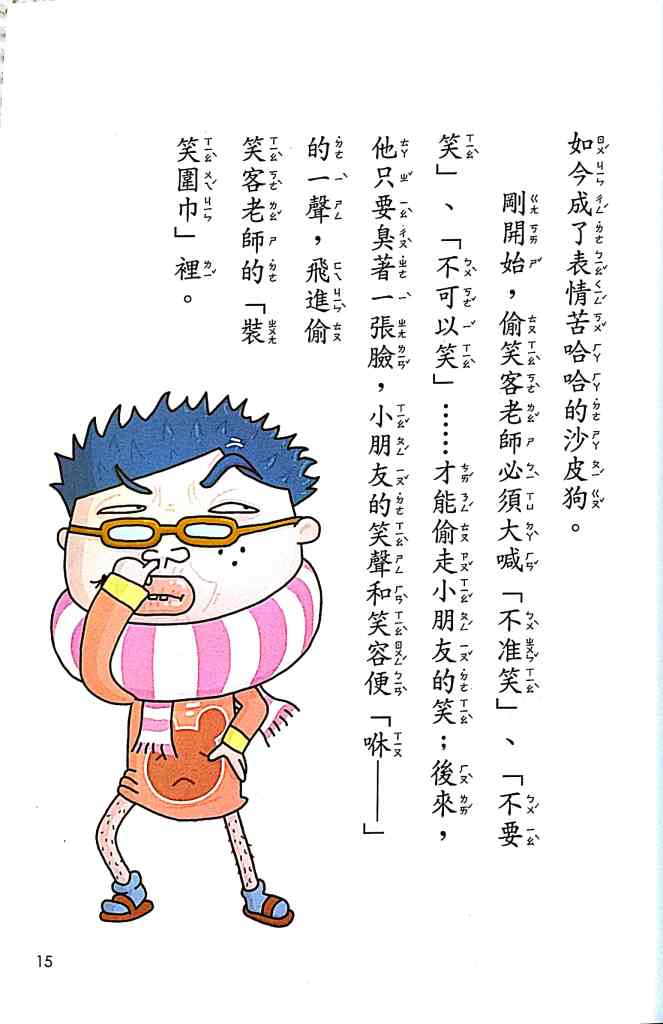 如今成了表情苦哈哈的沙皮狗。
剛開始，偷笑客老師必須大喊「不准笑」、「不要
笑」、「不可以笑」……才能偷走小朋友的笑；後來，
他只要臭著一張臉，小朋友的笑聲和笑容便「咻——」
的一聲，飛進偷
笑客老師的「裝
笑圍巾」裡。
15